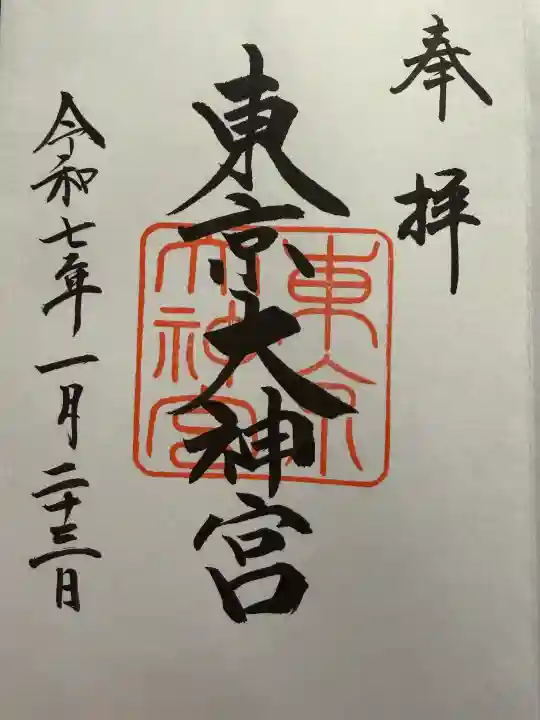 奉拝
東京大神宮
東京
大神宮
令和七年一月二十三日